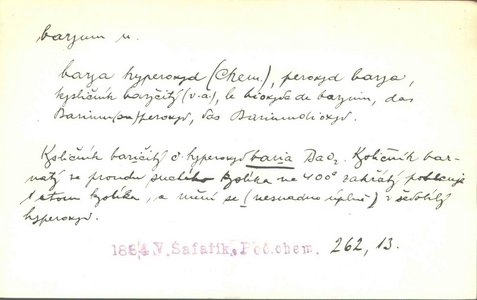 baryum n.
barya hyperoxyd (Chem.), peroxyd barya,
kysličník baryčitý (v.a), le bioxyde de baryum, das
Barium(su)peroxyd, das Bariumdioxyd.
Kysličník baričitý č. hyperoxyd baria BaO₂. Kysličník bar-
natý se proudu suchého kyslíka na 400° zahřátý pohlcuje
1 atom kyslíka, a mění se (nesnadno úplně) v šedobílý
hyperoxyd.
1884 V. Šafařík, Poč. chem. 262, 13.